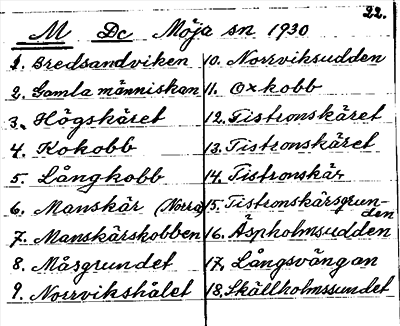 22.
M Dc Möja sn 1930
1. Bredsandviken
2. Gamla människan
3. Högskäret
4. Kokobb
5. Långkobb
6. Manskär (Norra)
7. Manskärskobben
8. Måsgrundet
9. Norrvikshålet
10. Norrviksudden
11. Oxkobb
12. Tistronskäret
13. Tistronskäret
14. Tistronskär
15. Tistronskärsgrun-
den
16. Äspholmsudden
17. Långsvängan
18. Skällholmssundet